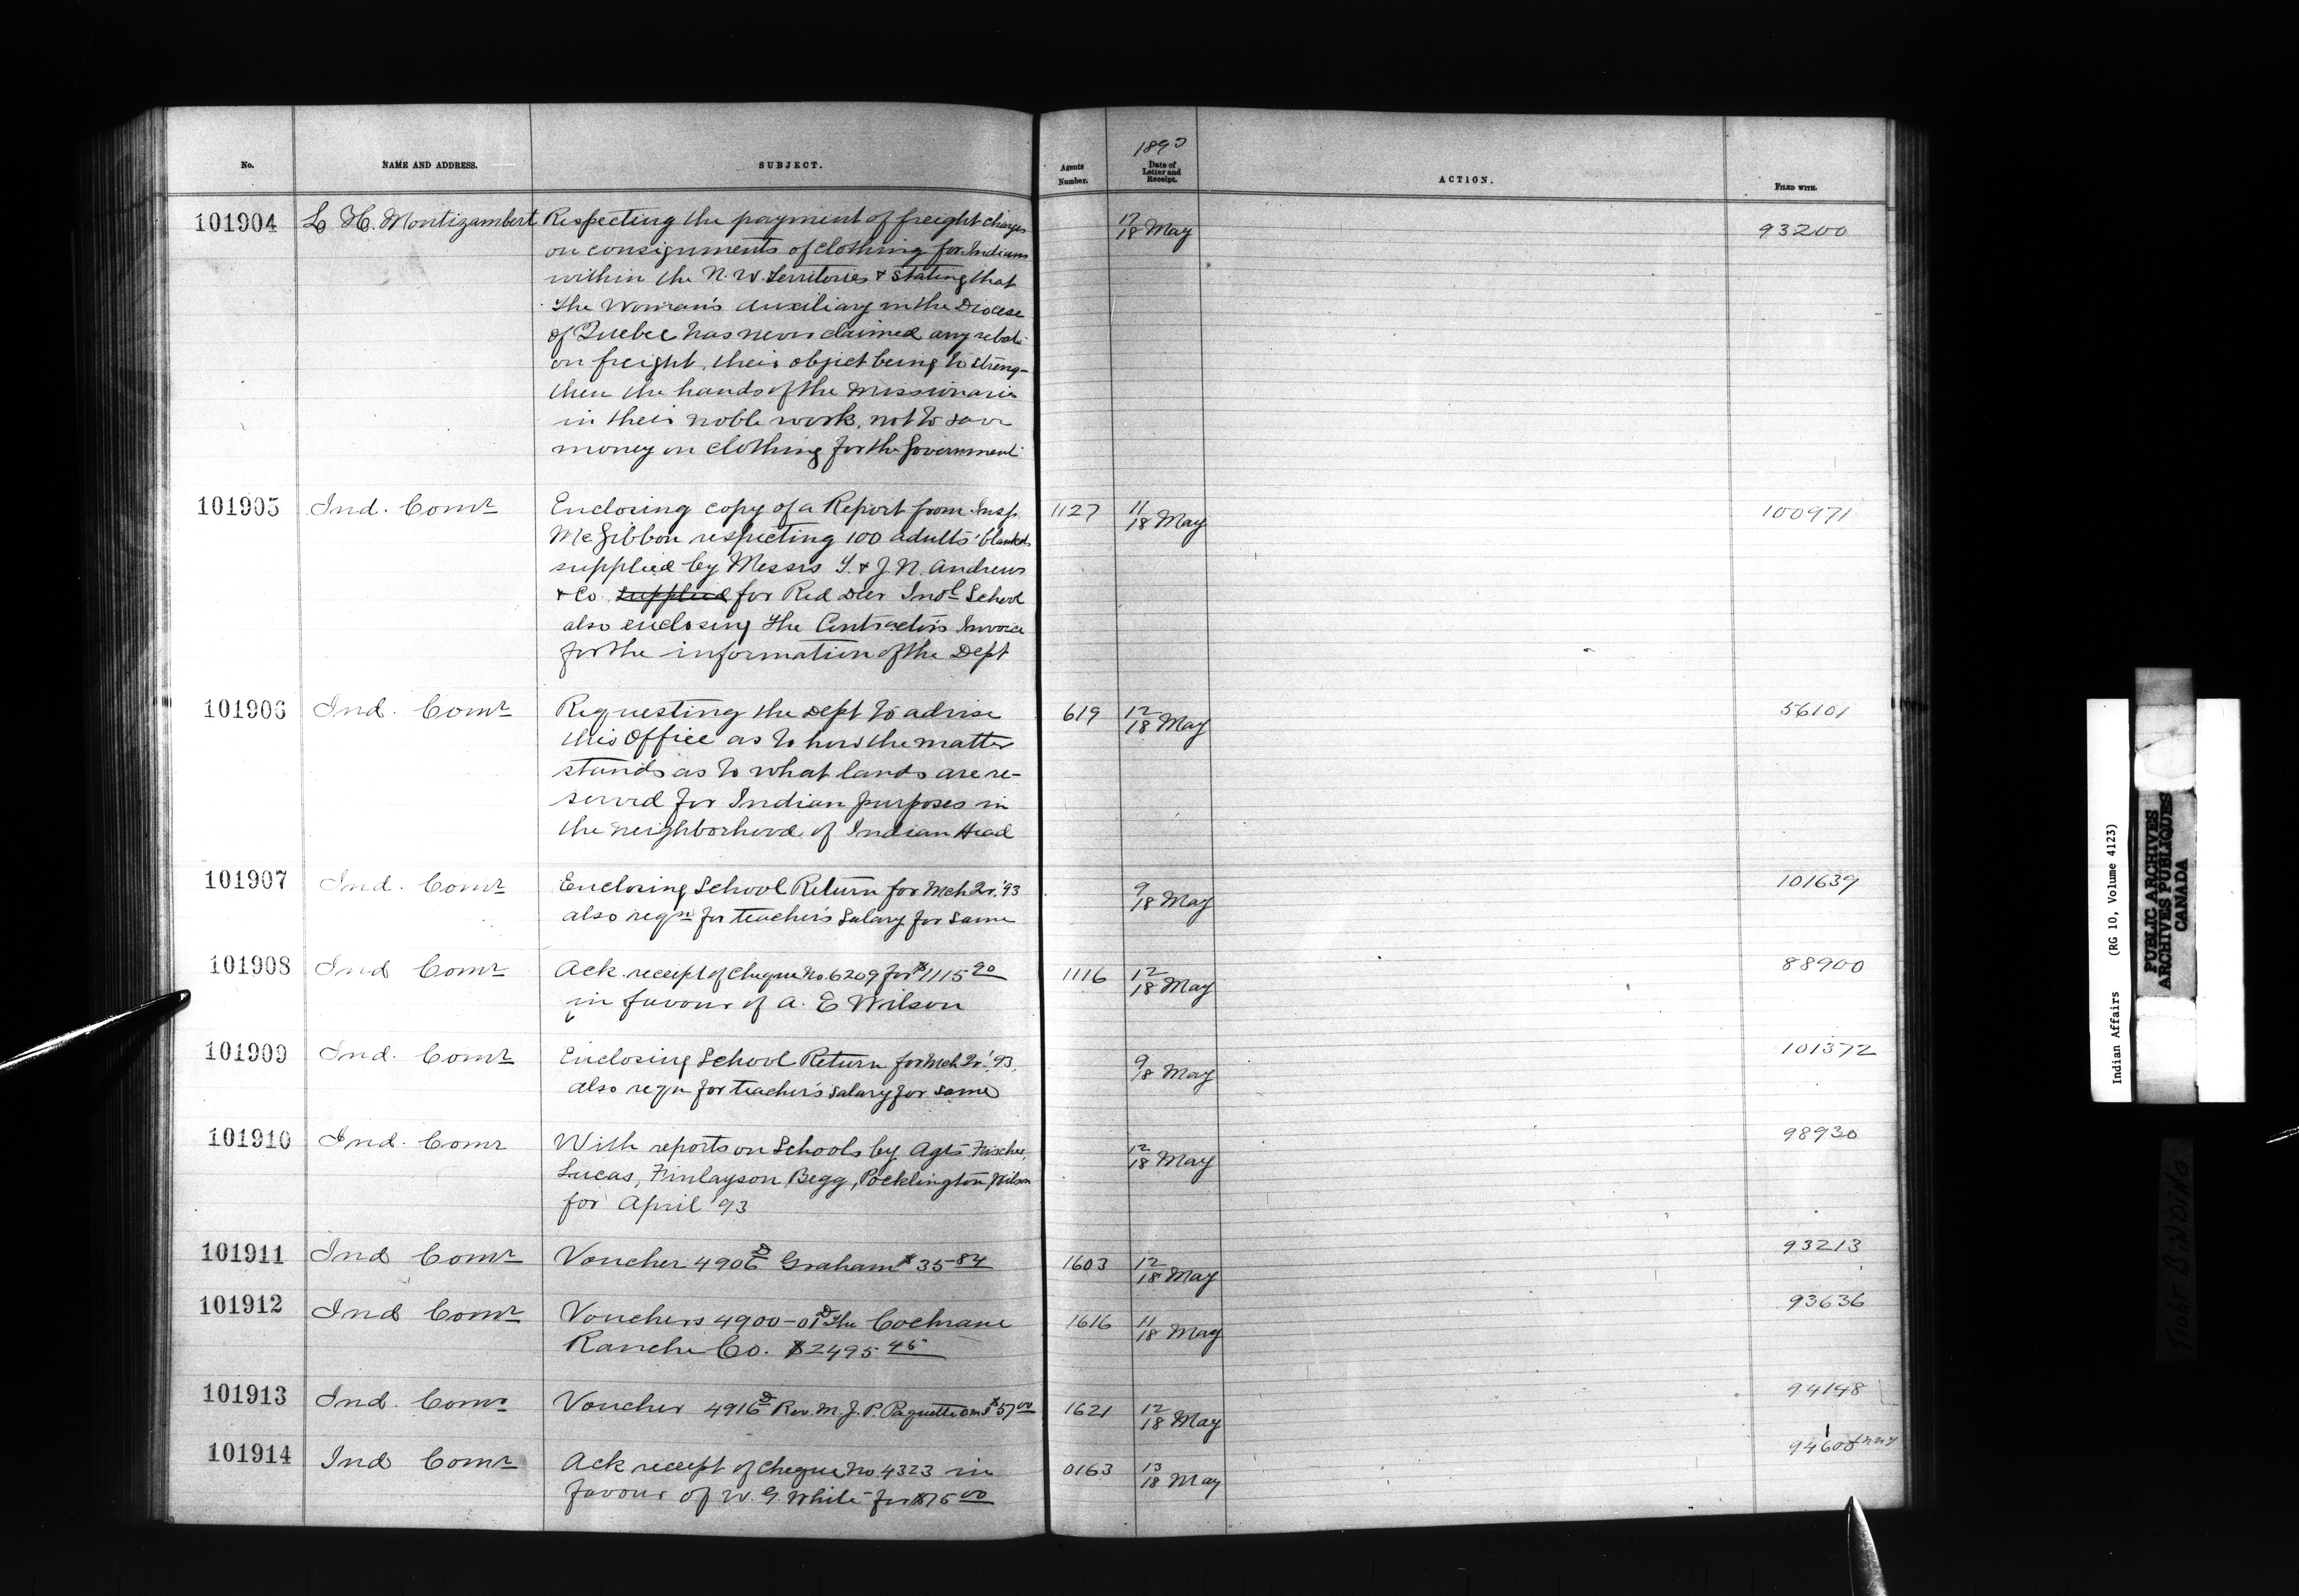 No. NAME AND ADDRESS. SUBJECT. Agents Number. 1893 Date of Letter and Receipt. ACTION. FILED WITH.
101904 L H. Montizambert Respecting the payment of freight charges 17/18 May 93200
on consignments of clothing for Indians
within the N. W Territories & stating that
the Woman's Auxiliary in the Diocese
of Quebec has never claimed any rebate
on freight, their object being to streng-
then the hands of the Missionaries
in their noble work, not to save
money on clothing for the Government
101905 Ind. Comr Enclosing copy of a Report from Insp. 1127 11/18 May 100971
McGibbon respecting 100 adults' blankets
supplied by Messrs T. & J. N. Andrews
& Co. supplied for Red Deer Indl School
also enclosing the Contractor's Invoice
for the information of the Dept
101906 Ind. Comr Requesting the Dept to advise 619 12/18 May 56101
this Office as to how the matter
stands as to what lands are re-
served for Indian purposes in
the neighborhood of Indian Head
101907 Ind. Comr Enclosing School Return for Mch Qr. '93 9/18 May 101639
also reqn for teacher's salary for same
101908 Ind Comr Ack. receipt of cheque No. 6209 for $1115 90 1116 12/18 May 88900
in favour of A. E Wilson
101909 Ind. Comr Enclosing School Return for Mch Qr. '93, 9/18 May 101372
also reqn for teacher's salary for same
101910 Ind. Comr With reports on Schools by Agts 12/18 May 98930
Lucas, Finlayson, Begg, Pocklington, Wilson
for April '93
101911 Ind Comr Voucher 4906 D Graham $35-84 1603 12/18 May 93213
101912 Ind Comr Vouchers 4900-01 D The Cochrane 1616 11/18 May 93636
Ranche Co. $2495 45
101913 Ind. Comr Voucher 4916 D Rev. M. J. P. Paquette $57 00 1621 12/18 May 94148
101914 Ind Comr Ack receipt of cheque No. 4323 in 0163 13/18 May 94600
favour of W. G White for $75 00
Indian Affairs (RG 10, Volume 4123)
PUBLIC ARCHIVES
ARCHIVES PUBLIQUES
CANADA
TIGHT BINDING